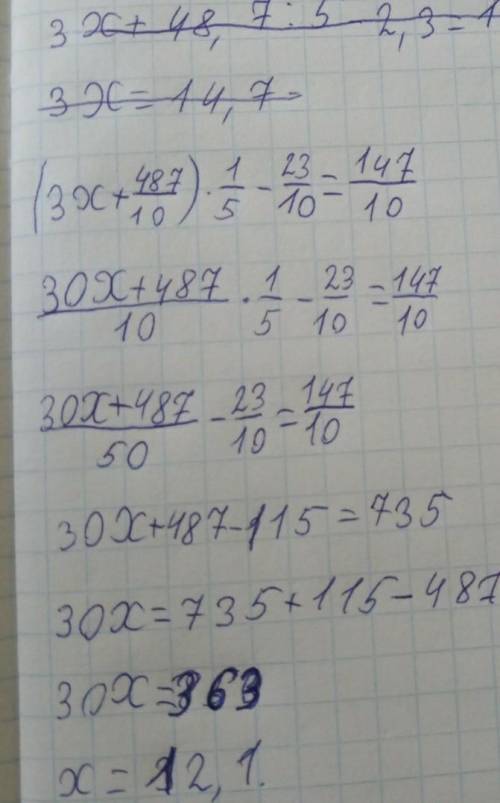 3x + 48,7 : 5 - 2,3 = 1
3x = 14,7
(3x + 487/10) · 1/5 - 23/10 = 147/10
30x + 487/10 · 1/5 - 23/10 = 147/10
30x + 487/50 - 23/10 = 147/10
30x + 487 - 115 = 735
30x = 735 + 115 - 487
30x = 363
x = 12,1.